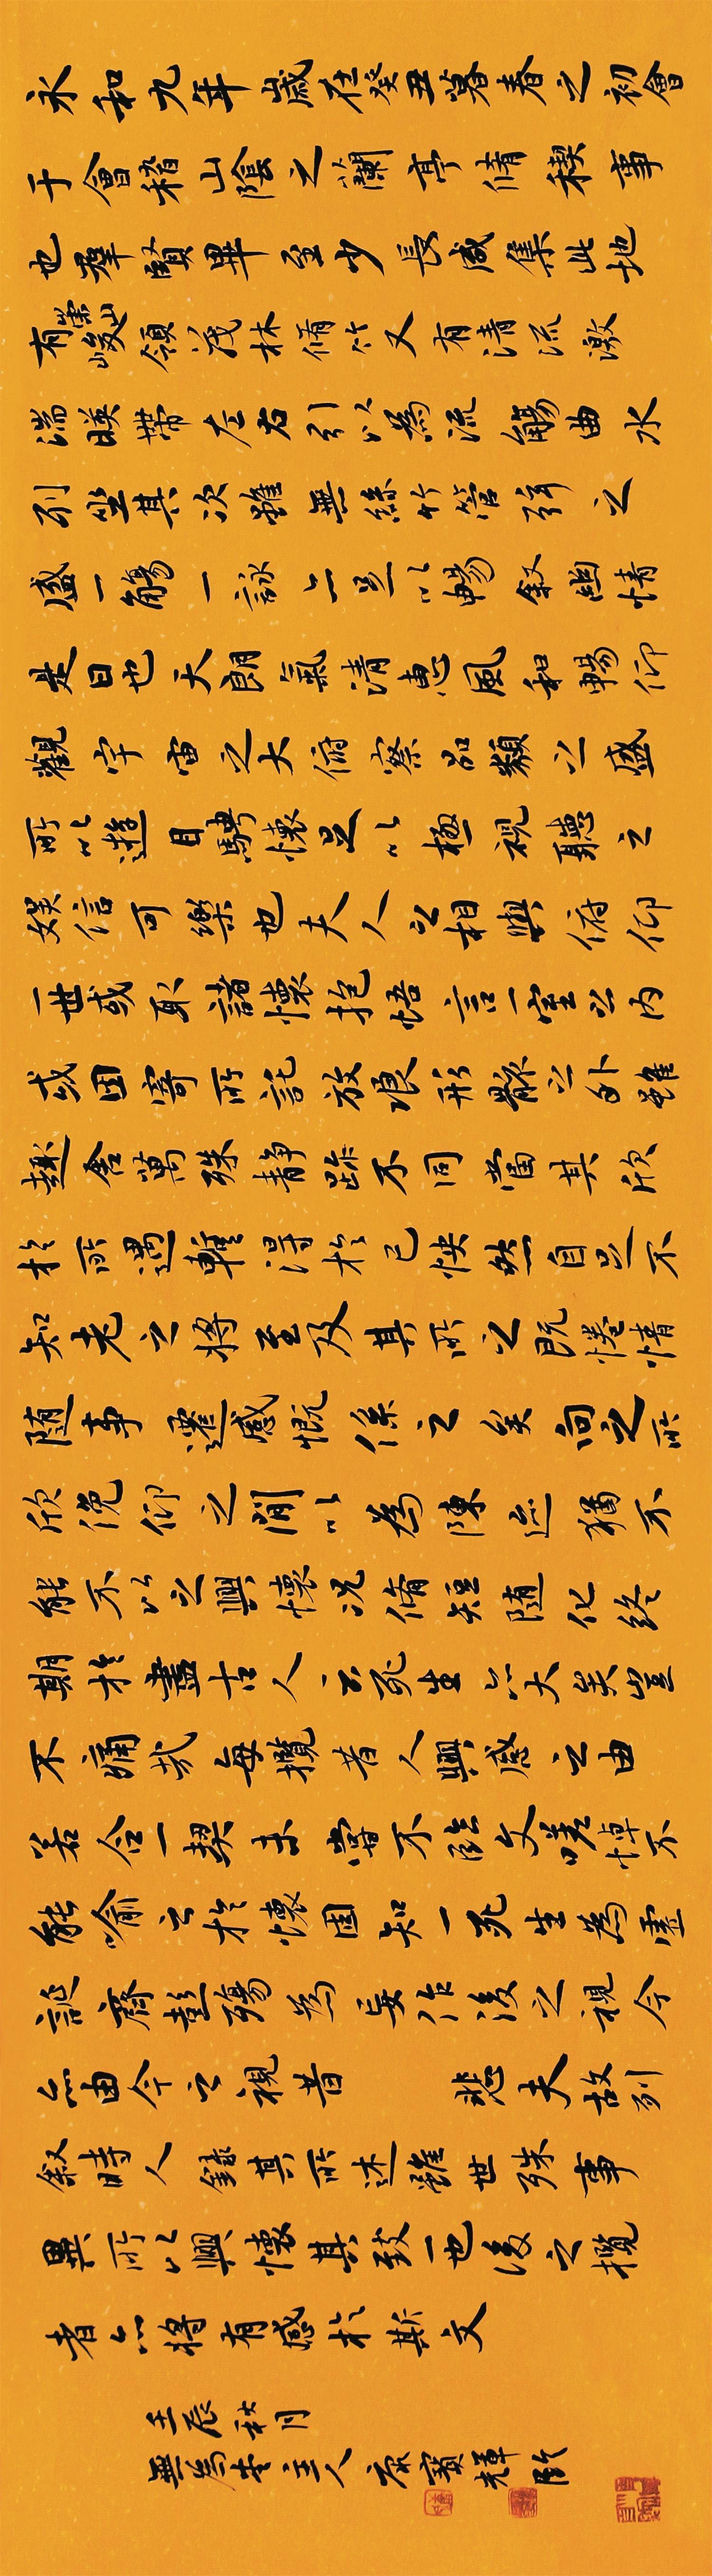 永和九年歲在癸丑暮春之初會
于會稽山陰之蘭亭脩稧事
也羣賢畢至少長咸集此地
有崇山峻領茂林脩竹又有清流激
湍暎帶左右引以為流觴曲水
列坐其次雖無絲竹管弦之
盛一觴一詠亦足以暢敘幽情
是日也天朗氣清惠風和暢仰
觀宇宙之大俯察品類之盛
所以遊目騁懷足以極視聽之
娛信可樂也夫人之相與俯仰
一世或取諸懷抱悟言一室之內
或因寄所託放浪形骸之外雖
趣舍萬殊靜躁不同當其欣
於所遇暫得於己怏然自足不
知老之將至及其所之既惓情
隨事遷感慨係之矣向之所
欣俛仰之閒以為陳迹猶不
能不以之興懷況脩短隨化終
期於盡古人云死生亦大矣豈
不痛哉每攬昔人興感之由
若合一契未嘗不臨文嗟悼不
能喻之於懷固知一死生為虛
誕齊彭殤為妄作後之視今
亦由今之視昔 悲夫故列
敘時人錄其所述雖世殊事
異所以興懷其致一也後之攬
者亦將有感於斯文
壬辰秋月
無為主人寶輝臨